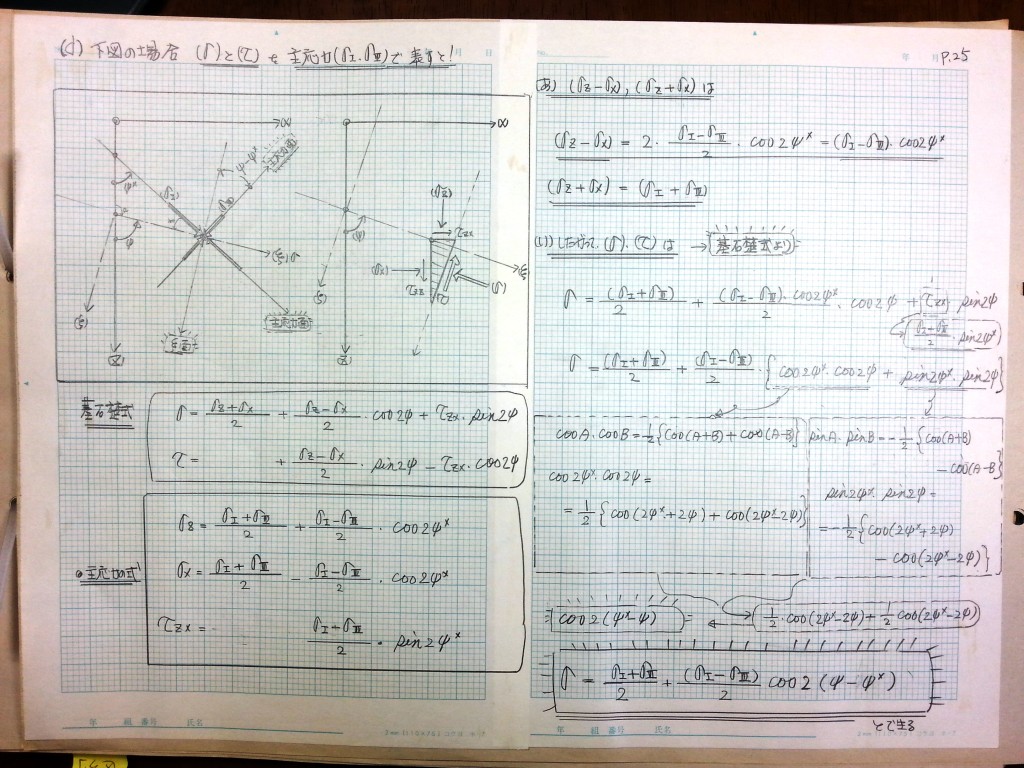 (d) 下図の場合 (σ)と(τ)を主応力(σI.σⅢ)で表すと!
年 月 日
P.25
x
x
ψ-ψ*
主応力面
ψ*
(σI)
(σⅢ)
ψ
(ξ)σ
(ζ)
(Z)
主応力面
(σz)
τzx
(ψ)
(σx)
τzx
(σ)
(ξ)
(ζ)
(Z)
基礎式
σ = σz+σx/2 + σz-σx/2 · cos2ψ + τzx · sin2ψ
τ = + σz-σx/2 · sin2ψ - τzx · cos2ψ
主応力式
σz = σI+σⅢ/2 + σI-σⅢ/2 · cos2ψ*
σx = σI+σⅢ/2 - σI-σⅢ/2 · cos2ψ*
τzx = σI-σⅢ/2 · sin2ψ*
年 組 番号 氏名
(あ) (σz-σx), (σz+σx) は
(σz-σx) = 2 · σI-σⅢ/2 · cos2ψ* = (σI-σⅢ) · cos2ψ*
(σz+σx) = (σI+σⅢ)
(い) したがって、(σ)·(τ) は → 基礎式より
σ = (σI+σⅢ)/2 + (σI-σⅢ)·cos2ψ*/2 · cos2ψ + τzx · sin2ψ
(σI-σⅢ/2 · sin2ψ*)
σ = (σI+σⅢ)/2 + (σI-σⅢ)/2 · {cos2ψ*·cos2ψ + sin2ψ*·sin2ψ}
cosA·cosB = 1/2{cos(A+B)+cos(A-B)}
cos2ψ*·cos2ψ =
= 1/2{cos(2ψ*+2ψ)+cos(2ψ*-2ψ)}
sinA·sinB = -1/2{cos(A+B)
-cos(A-B)}
sin2ψ*·sin2ψ =
= -1/2{cos(2ψ*+2ψ)
-cos(2ψ*-2ψ)}
= cos2(ψ*-ψ) = 1/2·cos(2ψ*-2ψ)+1/2cos(2ψ*-2ψ)
σ = σI+σⅢ/2 + (σI-σⅢ)/2 cos2(ψ-ψ*)
とできる
年 組 番号 氏名